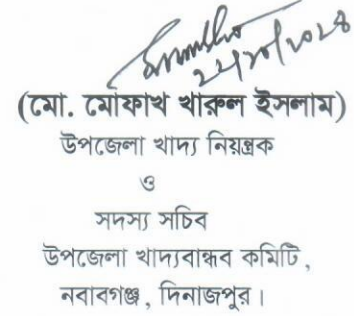 (মো. মোফাখ খারুল ইসলাম)
উপজেলা খাদ্য নিয়ন্ত্রক
ও
সদস্য সচিব
উপজেলা খাদ্যবান্ধব কমিটি,
নবাবগঞ্জ, দিনাজপুর।